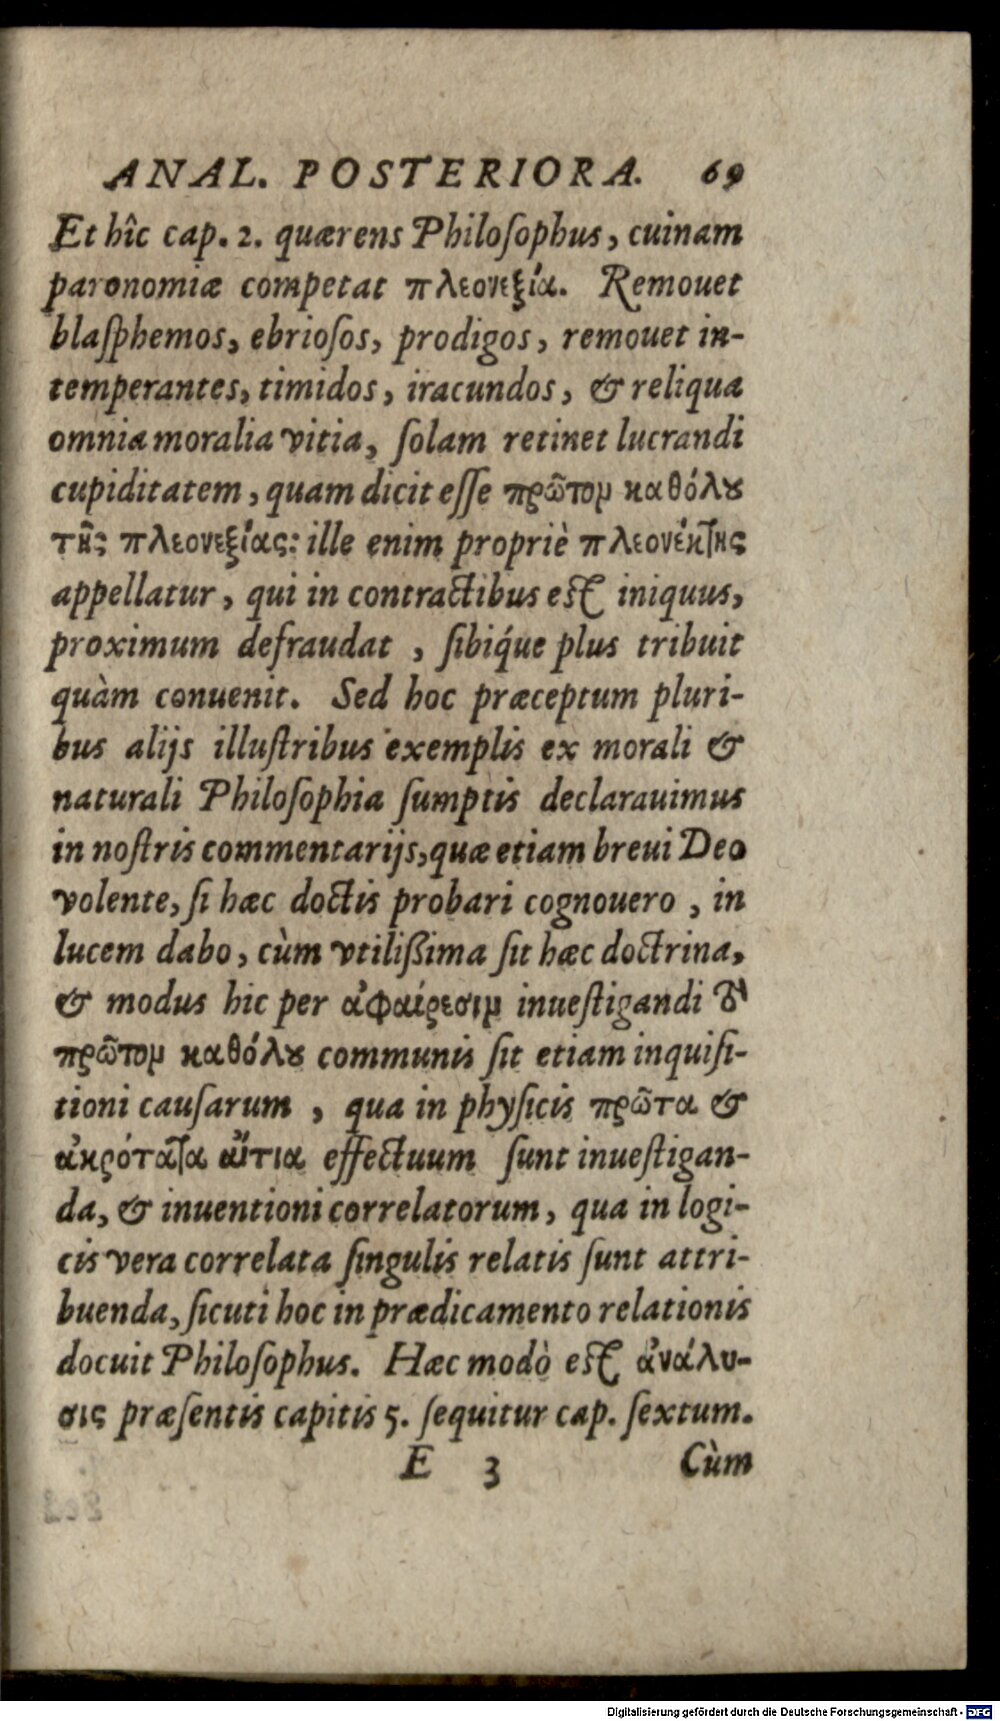 ANAL. POSTERIORA. 69
Et hîc cap. 2. quærens Philoſophus, cuinam
paronomiæ competat πλεονεξία. Remouet
blaſphemos, ebrioſos, prodigos, remouet in-
temperantes, timidos, iracundos, & reliqua
omnia moralia vitia, ſolam retinet lucrandi
cupiditatem, quam dicit eſſe πρῶτομ καθόλȣ
τῆς πλεονεξίας: ille enim propriè πλεονέκτης
appellatur, qui in contractibus eſt iniquus,
proximum defraudat, ſibiq́ue plus tribuit
quàm conuenit. Sed hoc præceptum pluri-
bus alijs illuſtribus exemplis ex morali &
naturali Philoſophia ſumptis declarauimus
in noſtris commentarijs, quæ etiam breui Deo
volente, ſi hæc doctis probari cognouero, in
lucem dabo, cùm vtilißima ſit hæc doctrina,
& modus hic per ἀφαίρεσιμ inueſtigandi τὸ
πρῶτομ καθόλȣ communis ſit etiam inquiſi-
tioni cauſarum, qua in phyſicis πρῶτα &
ἀκρότατα αἴτια effectuum ſunt inueſtigan-
da, & inuentioni correlatorum, qua in logi-
cis vera correlata ſingulis relatis ſunt attri-
buenda, ſicuti hoc in prædicamento relationis
docuit Philoſophus. Hæc modò eſt ἀνάλυ-
σις præſentis capitis 5. ſequitur cap. ſextum.
E 3 Cùm
Digitalisierung gefördert durch die Deutsche Forschungsgemeinschaft - DFG